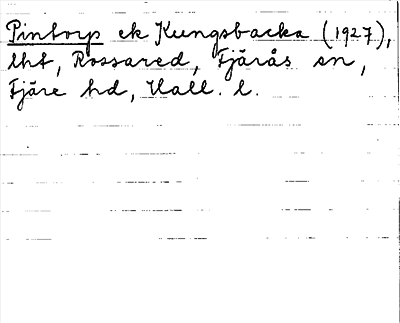 Pintorp ek Kungsbacka (1927),
lht, Rossared, Fjärås sn,
Fjäre hd, Hall. l.